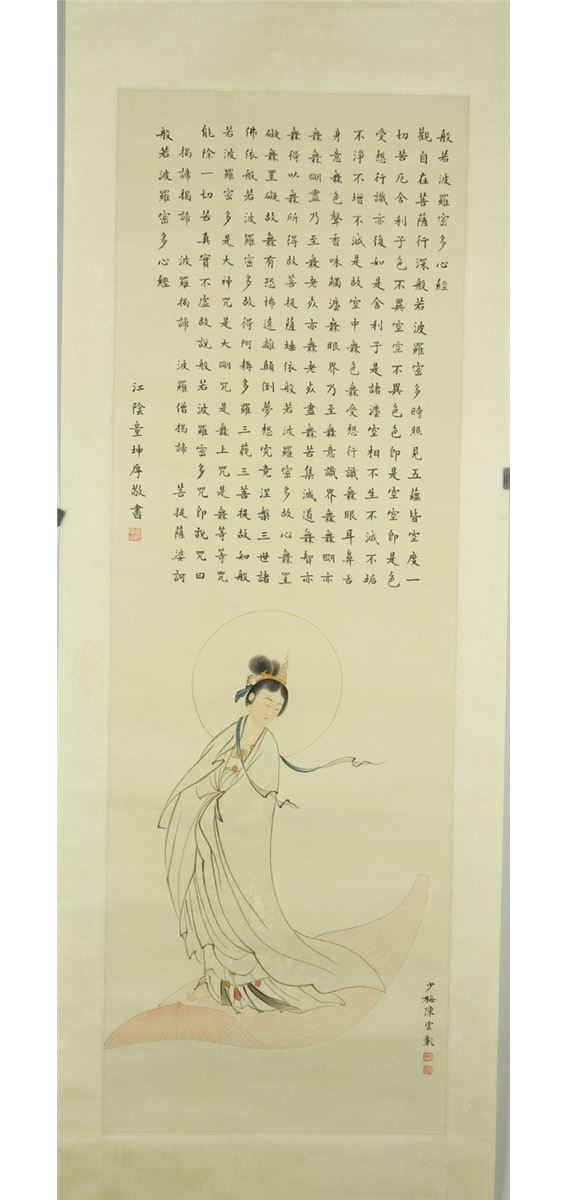 般若波羅密多心經
觀自在菩薩行深般若波羅密多時照見五蘊皆空度一
切苦厄舍利子色不異空空不異色色即是空空即是色
受想行識亦復如是舍利子是諸灋空相不生不滅不垢
不淨不增不減是故空中無色無受想行識無眼耳鼻舌
身意無色聲香味觸灋無眼界乃至無意識界無無朙亦
無無朙盡乃至無老死亦無老死盡無苦集滅道無智亦
無得以無所得故菩提薩埵依般若波羅密多故心無罣
礙無罣礙故無有恐怖遠離顛倒夢想究竟涅槃三世諸
佛依般若波羅密多故得阿耨多羅三藐三菩提故知般
若波羅密多是大神咒是大朙咒是無上咒是無等等咒
能除一切苦真實不虛故說般若波羅密多咒即說咒曰
揭諦揭諦 波羅揭諦 波羅僧揭諦 菩提薩婆訶
般若波羅密多心經
江陰童坤厚敬書
少梅陳雲彰